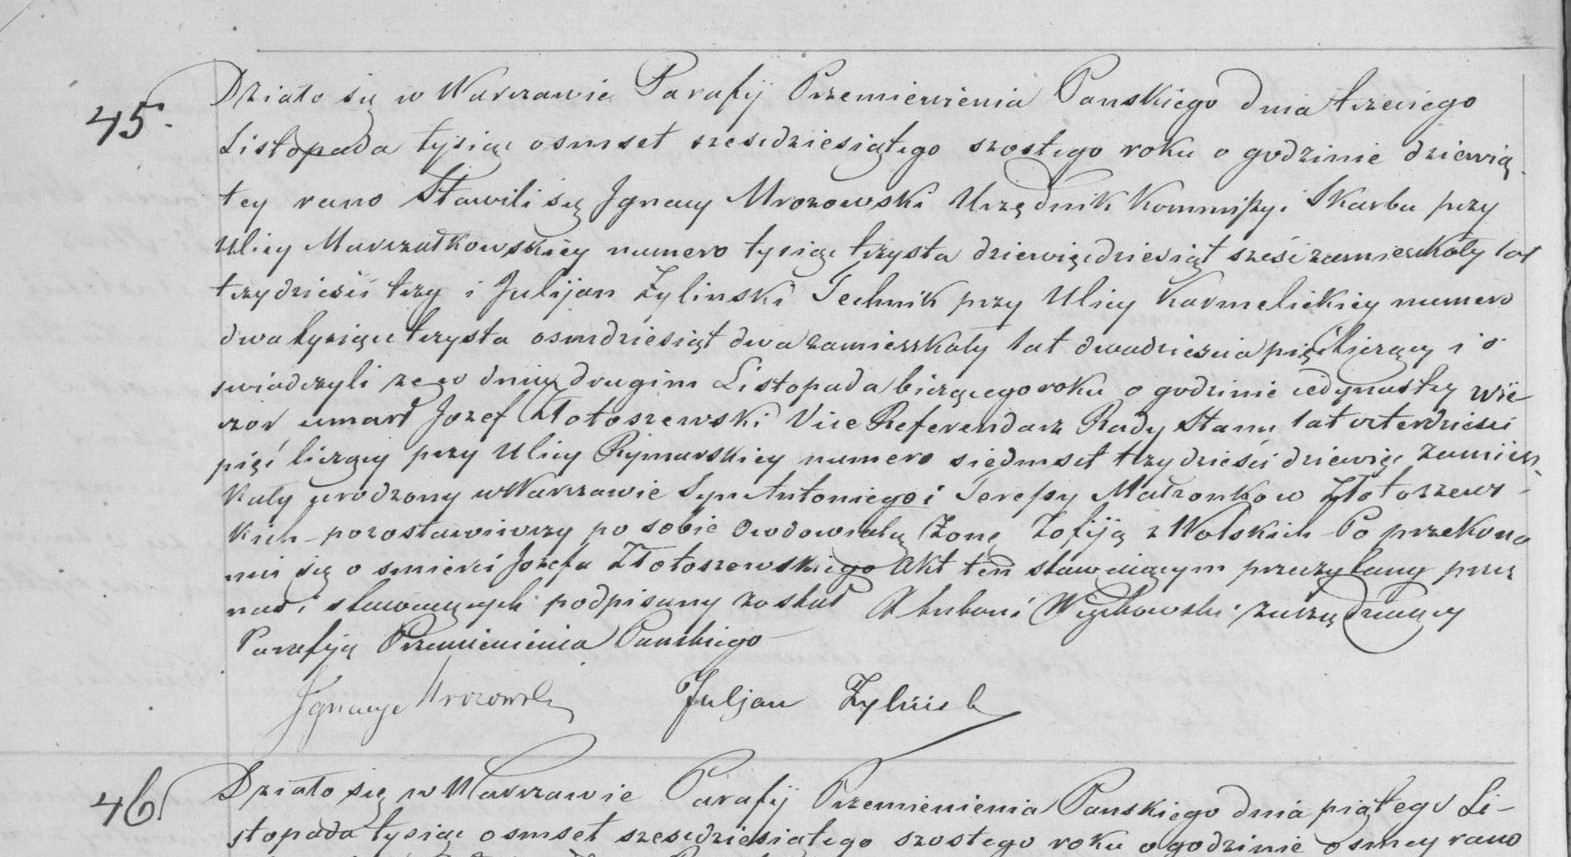 45. Działo się w Warszawie Parafij Przemienienia Panskiego dnia trzeciego
Listopada tysiąc osmset szescdziesiątego szostego roku o godzinie dziewią
tey rano Stawili się Jgnacy Mrozowski Urzędnik Kommißyi Skarbu przy
Ulicy Marszałkowskiey numero tysiąc trzysta dziewięcdziesiąt szesc zamieszkały lat
trzydziesci trzy i Julijan Zylinski Technik przy Ulicy Karmelickiey numero
dwa tysiące trzysta osmdziesiąt dwa zamieszkały lat dwadziescia pięc liczący i o
swiadczyli ze w dniu drugim Listopada bieżącego roku o godzinie iedynastey wie
czor umarł Jozef Złotoszewski Vice Referendarz Rady Stanu lat czterdziesci
pięć liczący przy Ulicy Rymarskiey numero siedmset trzydziesci dziewięc zamiesz
kały urodzony w Warszawie Syn Antoniego i Tereßy Małzonkow Złotoszews
kich pozostawiwszy po sobie owdowiałą Zonę Zofiją z Wolskich Po przekona
niu się o smierci Jozefa Złotoszewskiego Akt ten stawaiącym przeczytany przez
nas i stawaiących podpisany został X Zarządzaiący
Parafyą Przemienienia Panskiego
Jgnacy Mrozowski Juljan Zylinski
46 Działo się w Warszawie Parafij Przemienienia Panskiego dnia piątego Li-
stopada tysiąc osmset szescdziesiątego szostego roku o godzinie osmey rano